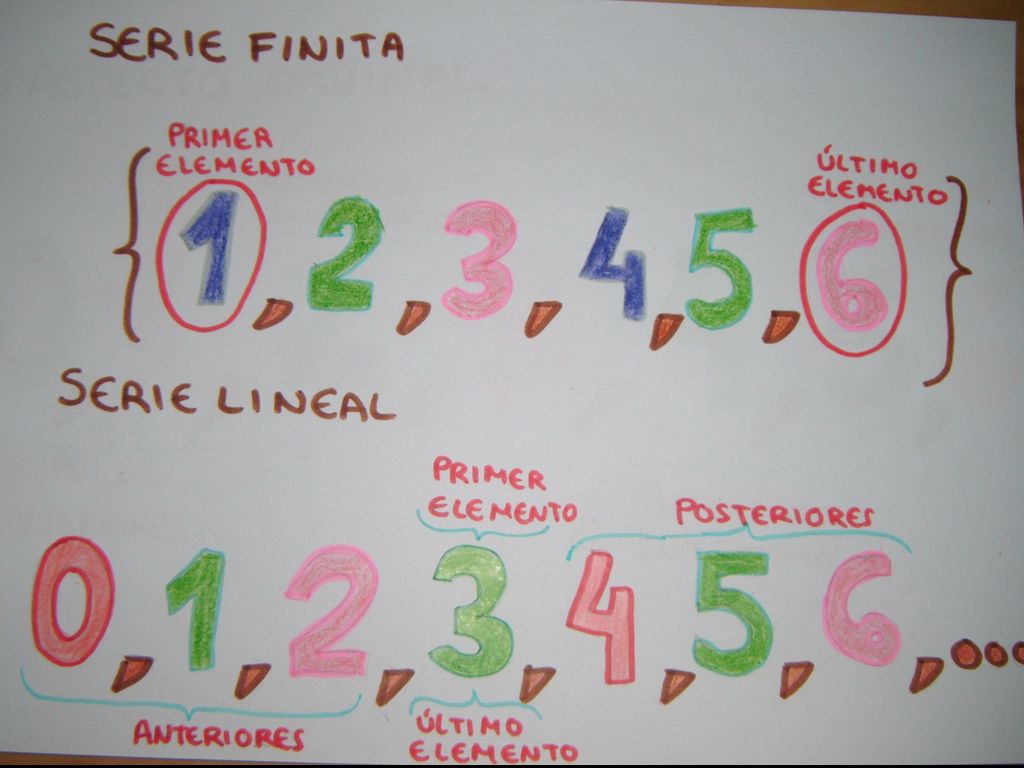 SERIE FINITA
PRIMER
ELEMENTO
ÚLTIMO
ELEMENTO
{ 1, 2, 3, 4, 5, 6 }
SERIE LINEAL
PRIMER
ELEMENTO
POSTERIORES
0, 1, 2, 3, 4, 5, 6, ...
ANTERIORES
ÚLTIMO
ELEMENTO